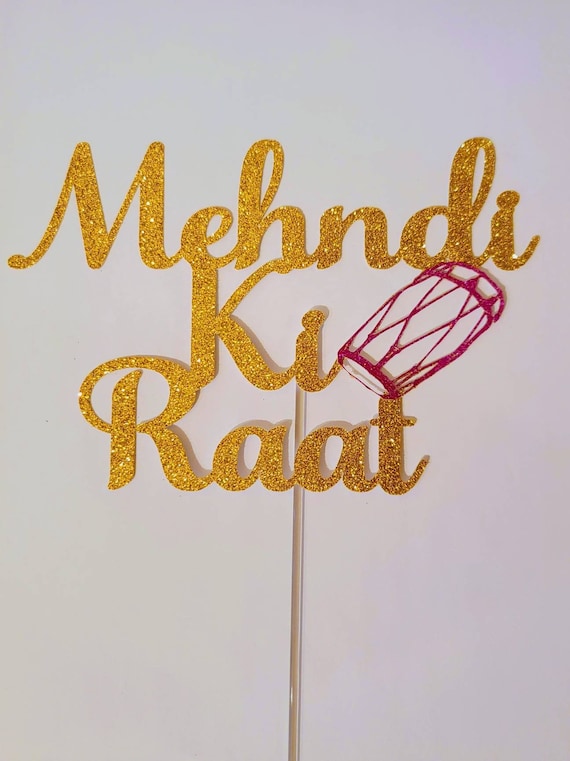 Mehndi
Ki
Raat